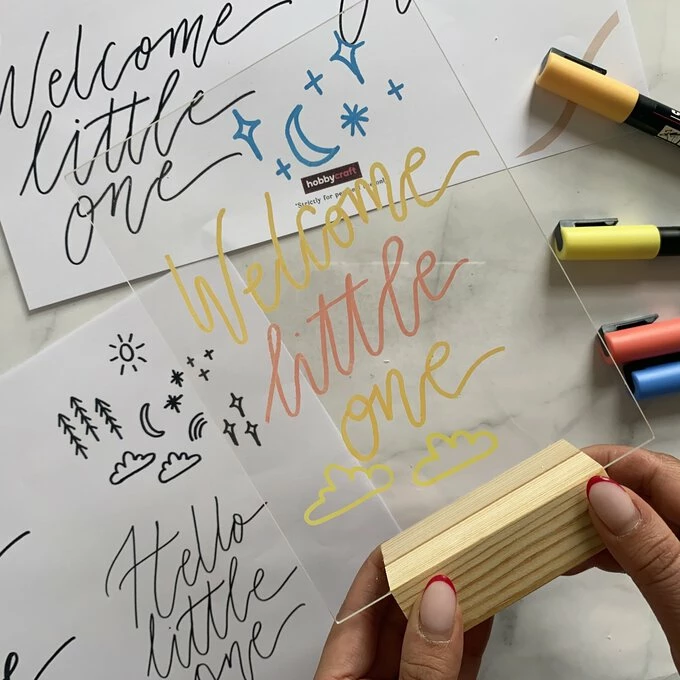 Welcome
little
one
hobbycraft
Welcome
little
one
Hello
little
one